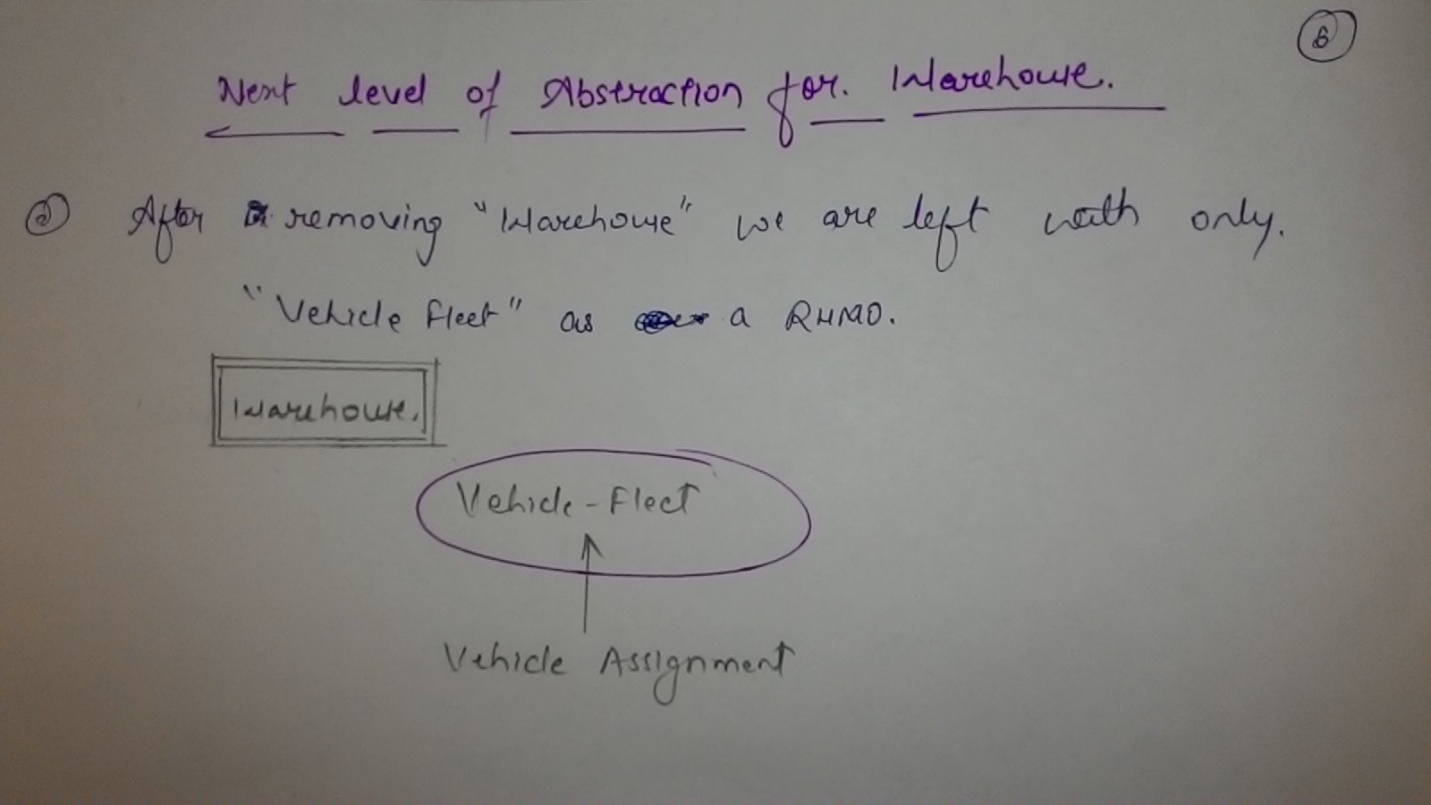 6
Next level of Abstraction for. Warehouse.
2) After removing "Warehouse" we are left with only.
"Vehicle Fleet" as a RHMD.
Warehouse.
Vehicle-Fleet
Vehicle Assignment